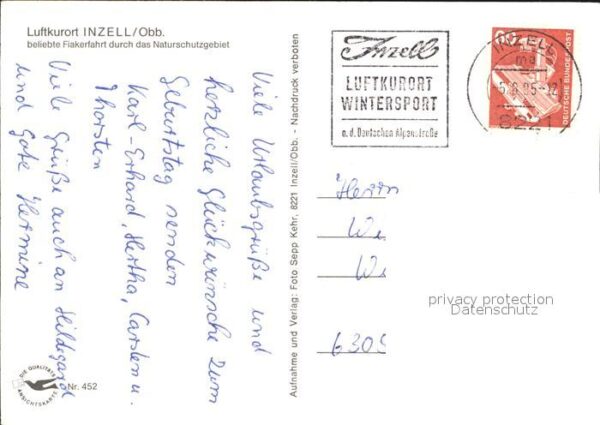 Luftkurort INZELL/Obb.
beliebte Fiakerfahrt durch das Naturschutzgebiet
Viele Urlaubsgrüße und
herzliche Glückwünsche zum
Geburtstag senden
Karl-Erhard, Hertha, Carsten u.
Thorsten
Viele Grüße auch an Hildegard
und Gote Hermine
DIE QUALITÄTS
ANSICHTSKARTE
Nr. 452
Aufnahme und Verlag: Foto Sepp Kehr, 8221 Inzell/Obb. - Nachdruck verboten
Inzell
LUFTKURORT
WINTERSPORT
a.d. Deutschen Alpenstraße
INZELL
8221
DEUTSCHE BUNDESPOST
Herrn
We
We
630
privacy protection
Datenschutz